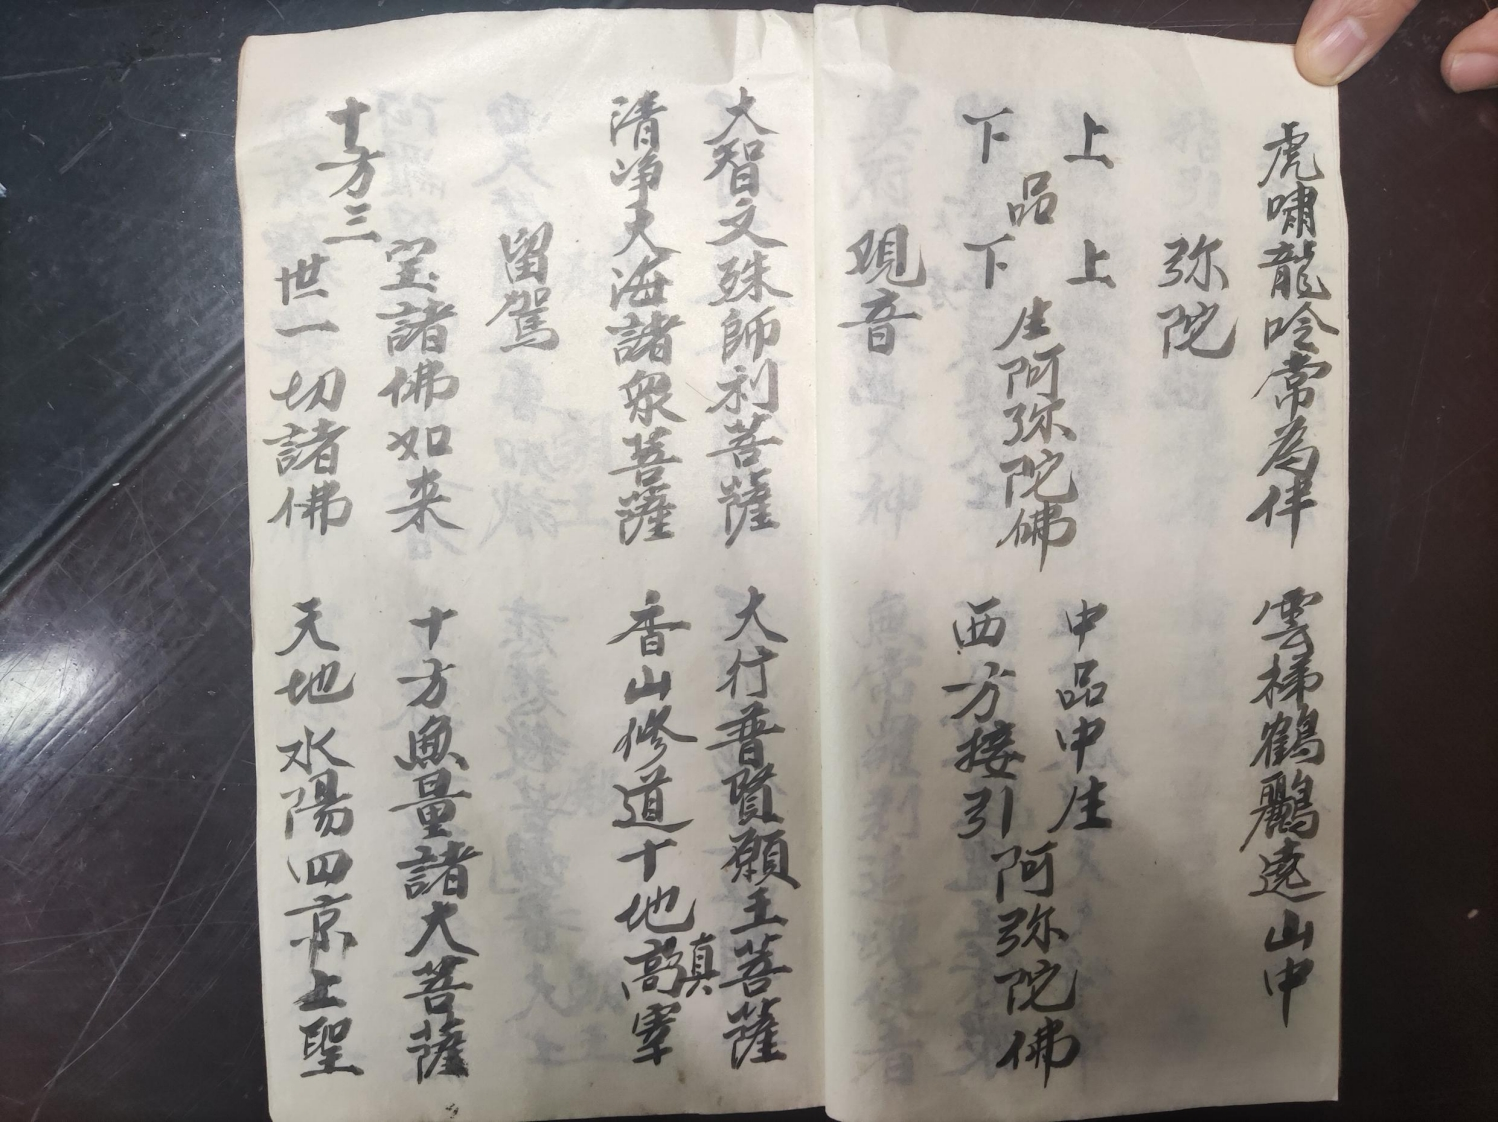 虎嘯龍吟常為伴 雲梯鶴鸝遶山中
弥陀
上上 中品中生
品 生阿弥陀佛 阿弥陀佛
下下 西方接引
观音
大智文殊師利菩薩 大行普賢願王菩薩
清净大海諸衆菩薩 香山修道十地高真
留駕
宝諸佛如来 十方無量諸大菩薩
十方三
世一切諸佛 天地水陽四京上聖